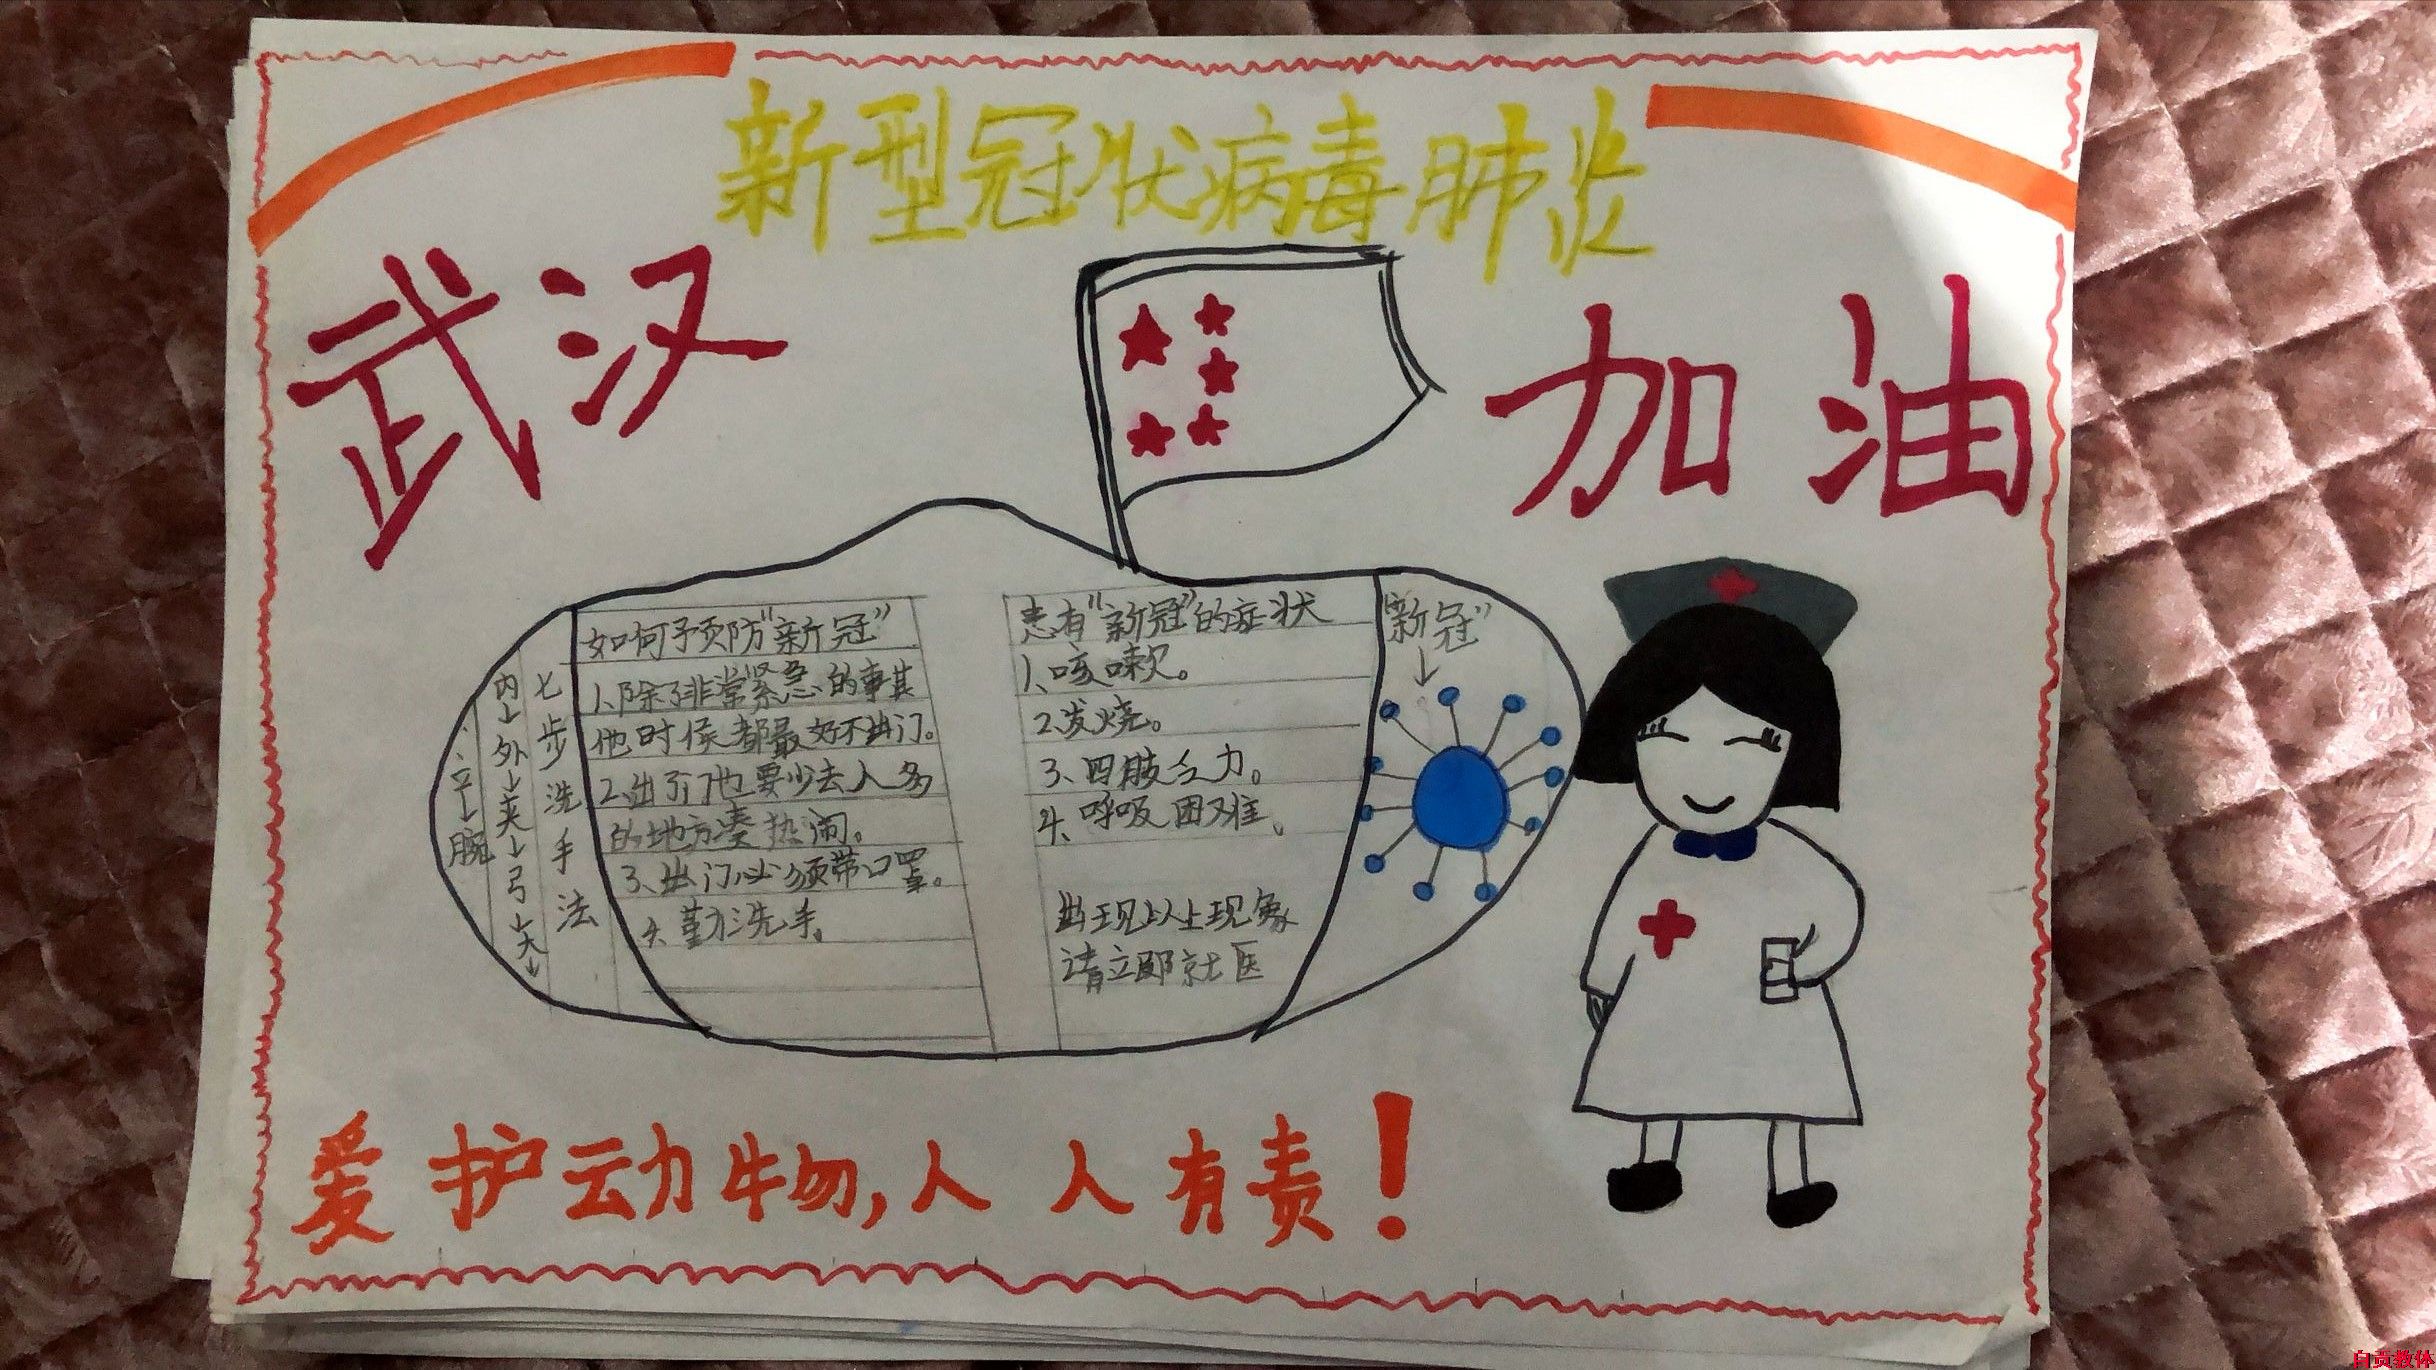 新型冠状病毒肺炎
武汉
加油
七步洗手法
内→外→夹→弓→大→
立→腕
如何予页防“新冠”
1、除了非常紧急的事其
他时候都最好不出门。
2、出了门也要少去人多
的地方凑热闹。
3、出门必须带口罩。
4、勤洗手。
患有“新冠”的症状
1、咳嗽。
2、发烧。
3、四肢乏力。
4、呼吸困难。
出现以上现象
请立即就医
“新冠”
爱护动物,人人有责!
自贡教体